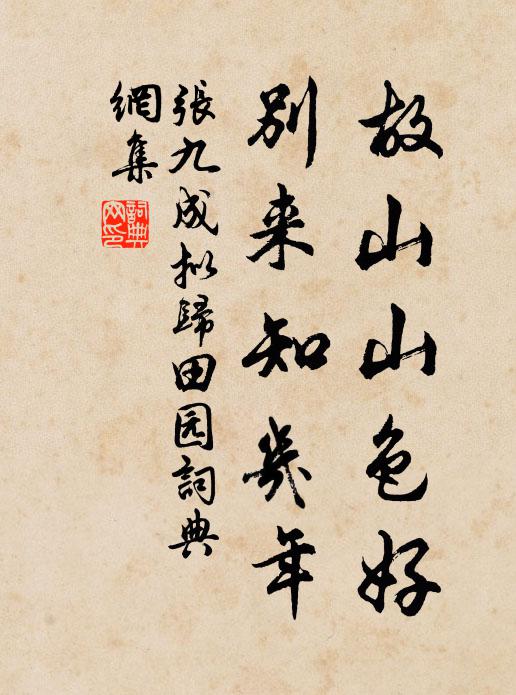 故山山色好
别来知幾年
張九成拟歸田园詞典
網集
詞典
网印